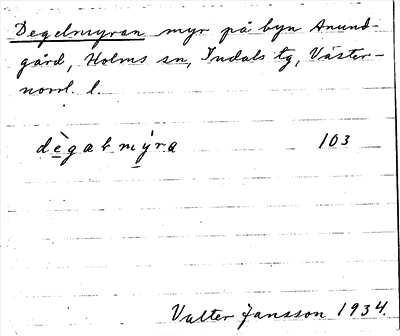 Degelmyran myr på byn Anund-
gård, Holms sn, Indals tg, Väster-
norrl. l.
dègalmýra 103
Valter Jansson 1934.